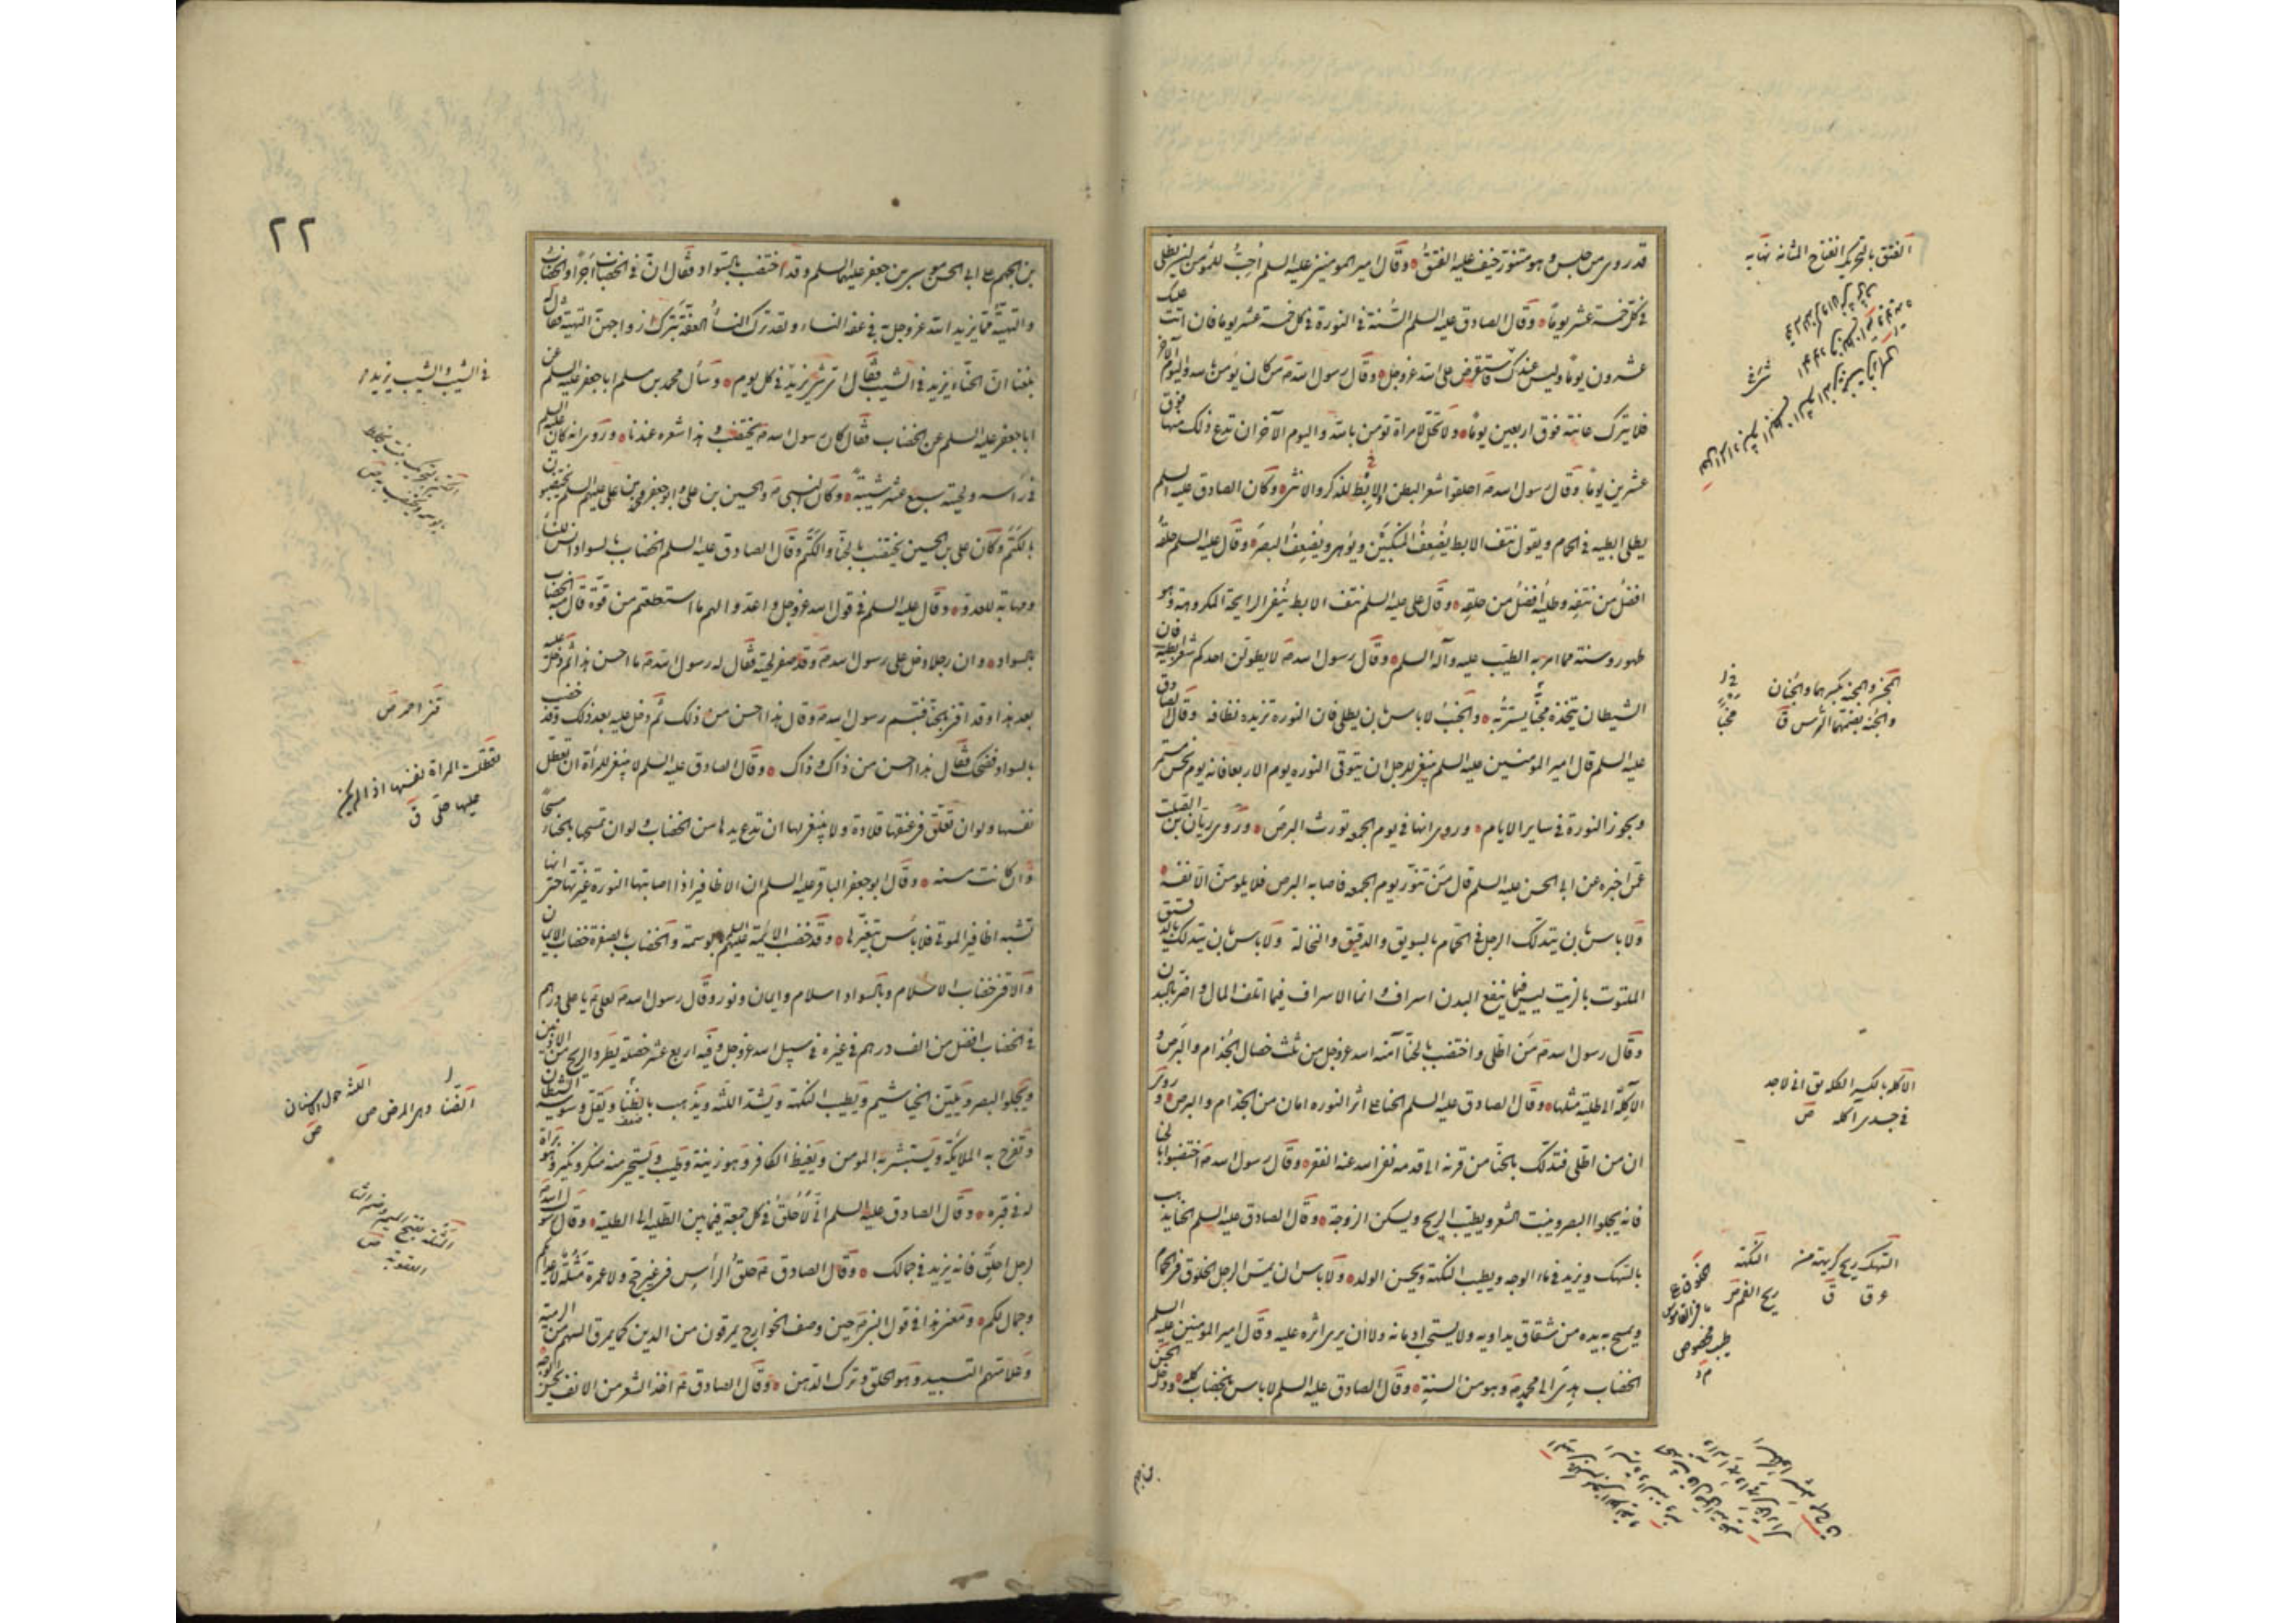 قد روى من جلس وهو متنور خيف عليه الفتق وقال امير المومنين عليه السلم احب للمؤمن ان يطلى
في كل خمسة عشر يوما وقال الصادق عليه السلم السنة في النورة في كل خمسة عشر يوما فان اتت عليك
عشرون يوما وليس عندك فاستقرض على الله عز وجل وقال رسول الله ص من كان يؤمن بالله واليوم الآخر
فلا يترك عانته فوق اربعين يوما ولا تحل لامراة تومن بالله واليوم الآخر ان تدع ذلك منها فوق
عشرين يوما وقال رسول الله ص احلقوا شعر البطن الابط للذكر والانثى وكان الصادق عليه السلم
يطلى ابطيه في الحمام ويقول نتف الابط يضعف المنكبين ويوهى ويضعف البصر وقال عليه السلم حلقه
افضل من نتفه وطليه افضل من حلقه وقال علي عليه السلم نتف الابط ينفى الرايحة المكروهة وهو
طهور وسنة مما امر به الطيب عليه وآله السلم وقال رسول الله ص لا يطولن احدكم شعر ابطيه فان
الشيطان يتخذه مجنا يستتر به والجنب لا باس بان يطلى فان النورة تزيده نظافة وقال الصادق
عليه السلم قال امير المومنين عليه السلم ينبغى للرجل ان يتوقى النورة يوم الاربعا فانه يوم نحس مستمر
ويجوز النورة في ساير الايام وروى انها في يوم الجمعه تورث البرص وروى ريان بن الصلت
عمن اخبره عن ابى الحسن عليه السلم قال من تنور يوم الجمعه فاصابه البرص فلا يلومن الا نفسه
ولا باس بان يتدلك الرجل في الحمام بالسويق والدقيق والنخالة ولا باس بان يتدلك بالدقيق
الملتوت بالزيت ليس فيما ينفع البدن اسراف وانما الاسراف فيما اتلف المال واضر بالبدن
وقال رسول الله ص من اطلى واختضب بالحنا آمنه الله عز وجل من ثلث خصال الجذام والبرص و
الآكلة الى طلية مثلها وقال الصادق عليه السلم الحنا على اثر النوره امان من الجذام والبرص وروى
ان من اطلى فتدلك بالحنا من قرنه الى قدمه نفى الله عنه الفقر وقال رسول الله ص اختضبوا بالحنا
فانه يجلوا البصر وينبت الشعر ويطيب الريح ويسكن الزوجة وقال الصادق عليه السلم الحنا يذهب
بالسهك ويزيد في ماء الوجه ويطيب النكهة ويحسن الولد ولا باس ان يمس الرجل الخلوق في الحمام
ويمسح به يده من شقاق يداويه ولا يستحب ادمانه ولا ان يرى اثره عليه وقال امير المومنين عليه السلم
الخضاب هدى الى محمد ص وهو من السنة وقال الصادق عليه السلم لا باس بالخضاب كله ودخل الحسن
بن الجهم
الفتق بالتحريك انفتاح المثانة نهاية
المجن والمجنة بكسرهما والجنان
والجنة بضمهما الترس ق
مجنا
الاكله بالكسر الحكة يق انى لاجد
في جسدى آكلة ص
السهك ريح كريهة من
عرق ق
النكهة
ريح الفم
طيب مخصوص
٢٢
بن الجهم على ابى الحسن موسى بن جعفر عليهما السلم وقد اختضب بالسواد فقال ان في الخضاب اجرا والخضاب
والتهيئة مما يزيد الله عز وجل به في عفة النساء ولقد ترك النسأ العفة بترك ازواجهن التهيئة فقال له
بلغنا ان الحناء يزيد في الشيب فقال اى شى يزيد في الشيب يزيد في كل يوم وسأل محمد بن مسلم ابا جعفر عليه السلم عن
ابا جعفر عليه السلم عن الخضاب فقال كان رسول الله ص يختضب وهذا شعره عندنا وروى انه كان عليه السلم
في راسه ولحيته سبع عشر شيبة وكان النبى ص والحسين بن على وابو جعفر محمد بن على عليهم السلم يختضبون
بالكتم وكان على بن الحسين يختضب بالحنا والكتم وقال الصادق عليه السلم الخضاب بالسواد انس للنسا
ومهابة للعدو وقال عليه السلم في قول الله عز وجل واعدوا لهم ما استطعتم من قوة قال منه الخضاب
بالسواد وان رجلا دخل على رسول الله ص وقد صفر لحيته فقال له رسول الله ص ما احسن هذا ثم دخل عليه
بعد هذا وقد اقنى بالحنا فتبسم رسول الله ص وقال هذا احسن من ذلك ثم دخل عليه بعد ذلك وقد خضب
بالسواد فضحك فقال هذا احسن من ذاك وذاك وقال الصادق عليه السلم لا ينبغى للمرأة ان تعطل
نفسها ولو ان تعلق في عنقها قلادة ولا ينبغى لها ان تدع يدها من الخضاب ولو ان تمسها بالحناء مسحا
وان كانت مسنه وقال ابو جعفر الباقر عليه السلم ان الاظافير اذا اصابتها النورة غيرتها حتى انها
تشبه اظافير الموتى فلا باس بتغيرها وقد خضب الائمة عليهم السلم بالوسمة والخضاب بالصفرة خضاب الايمان
والاقنى خضاب الاسلام وبالسواد اسلام وايمان ونور وقال رسول الله ص لعلى ع يا على درهم
في الخضاب افضل من الف درهم في غيره في سبيل الله عز وجل وفيه اربع عشر خصلة يطرد الريح من الاذنين
ويجلوا البصر ويلين الخياشيم ويطيب النكهة ويشد اللثة ويذهب بالضنا ويقل وسوسة الشيطان
وتفرح به الملائكة ويستبشر به المومن ويغيظ الكافر وهو زينة وطيب ويستحيى منه منكر ونكير وهو براة
له في قبره وقال الصادق عليه السلم انى لاحلق في كل جمعة فيما بين الطلية الى الطلية وقال رسول الله ص
لرجل احلق فانه يزيد في جمالك وقال الصادق ع حلق الرأس في غير حج ولا عمرة مثلة لاعدائكم
وجمال لكم ومعنى هذا في قول النبى ص حين وصف الخوارج يمرقون من الدين كما يمرق السهم من الرمية
وعلامتهم التسبيد وهو الحلق وترك التدهن وقال الصادق ع اخذ الشعر من الانف يحسن الوجه
في الشيب والشيب يزيد
قنى احمر ص
تعطلت المراة نفسها اذا لم يكن
عليها حلى ق
الضنا وهو المرض ص
اللثة حول الاسنان
ص
العقوبة ص